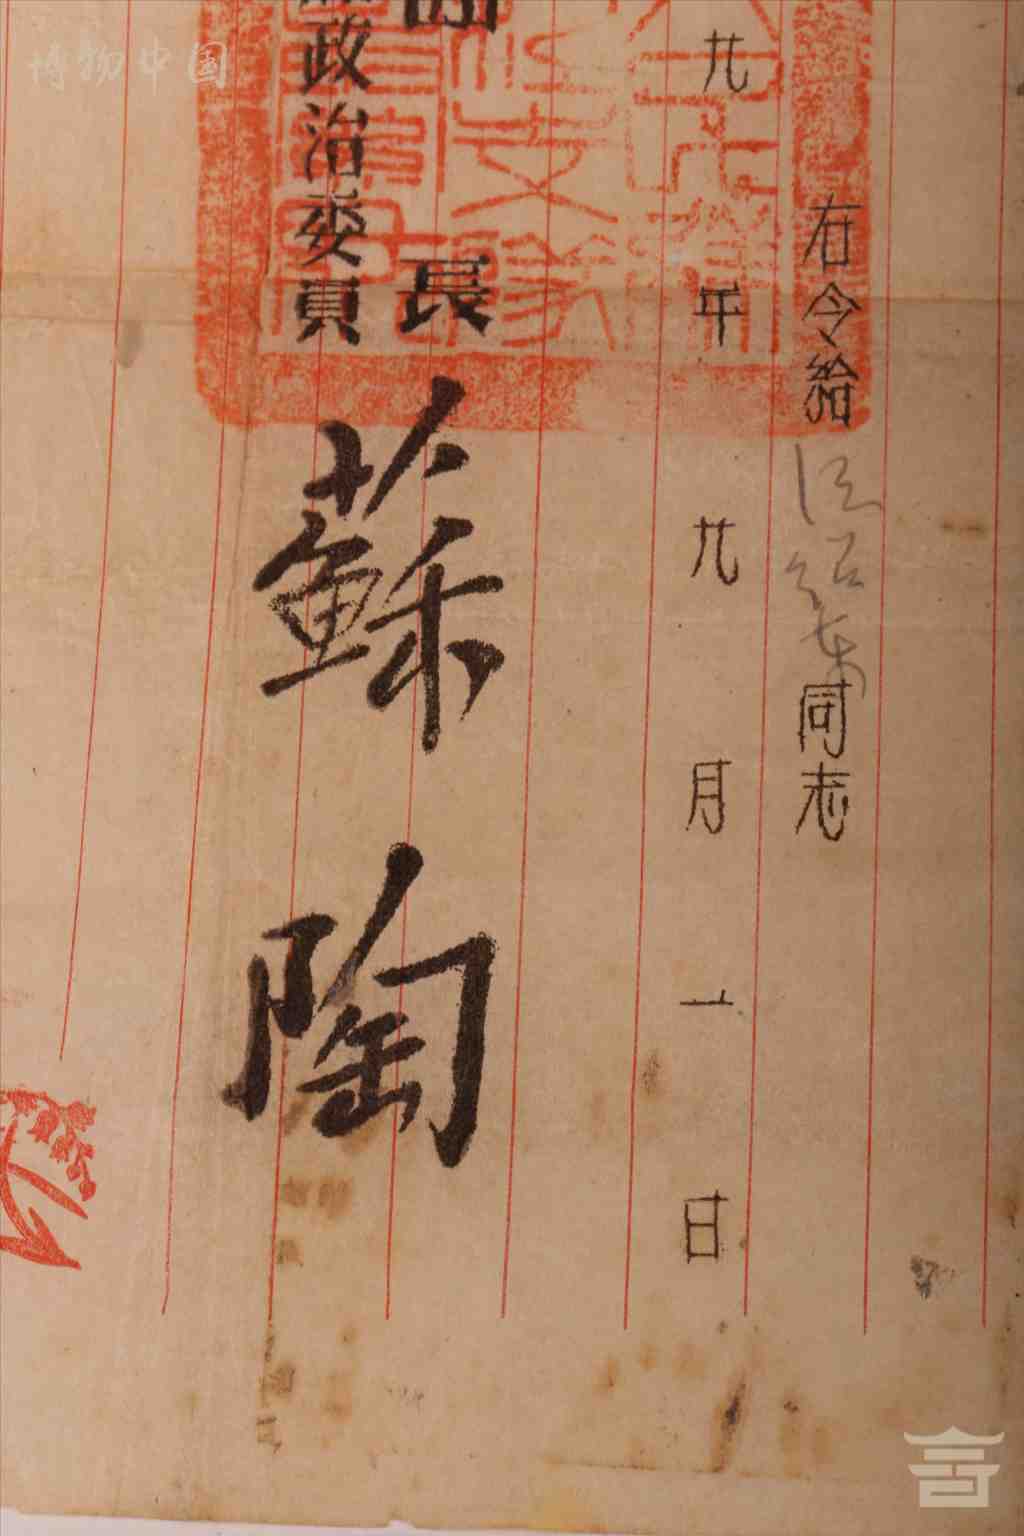 博物中国
右令給
同志
九年九月一日
長
政治委員
蘇
陶